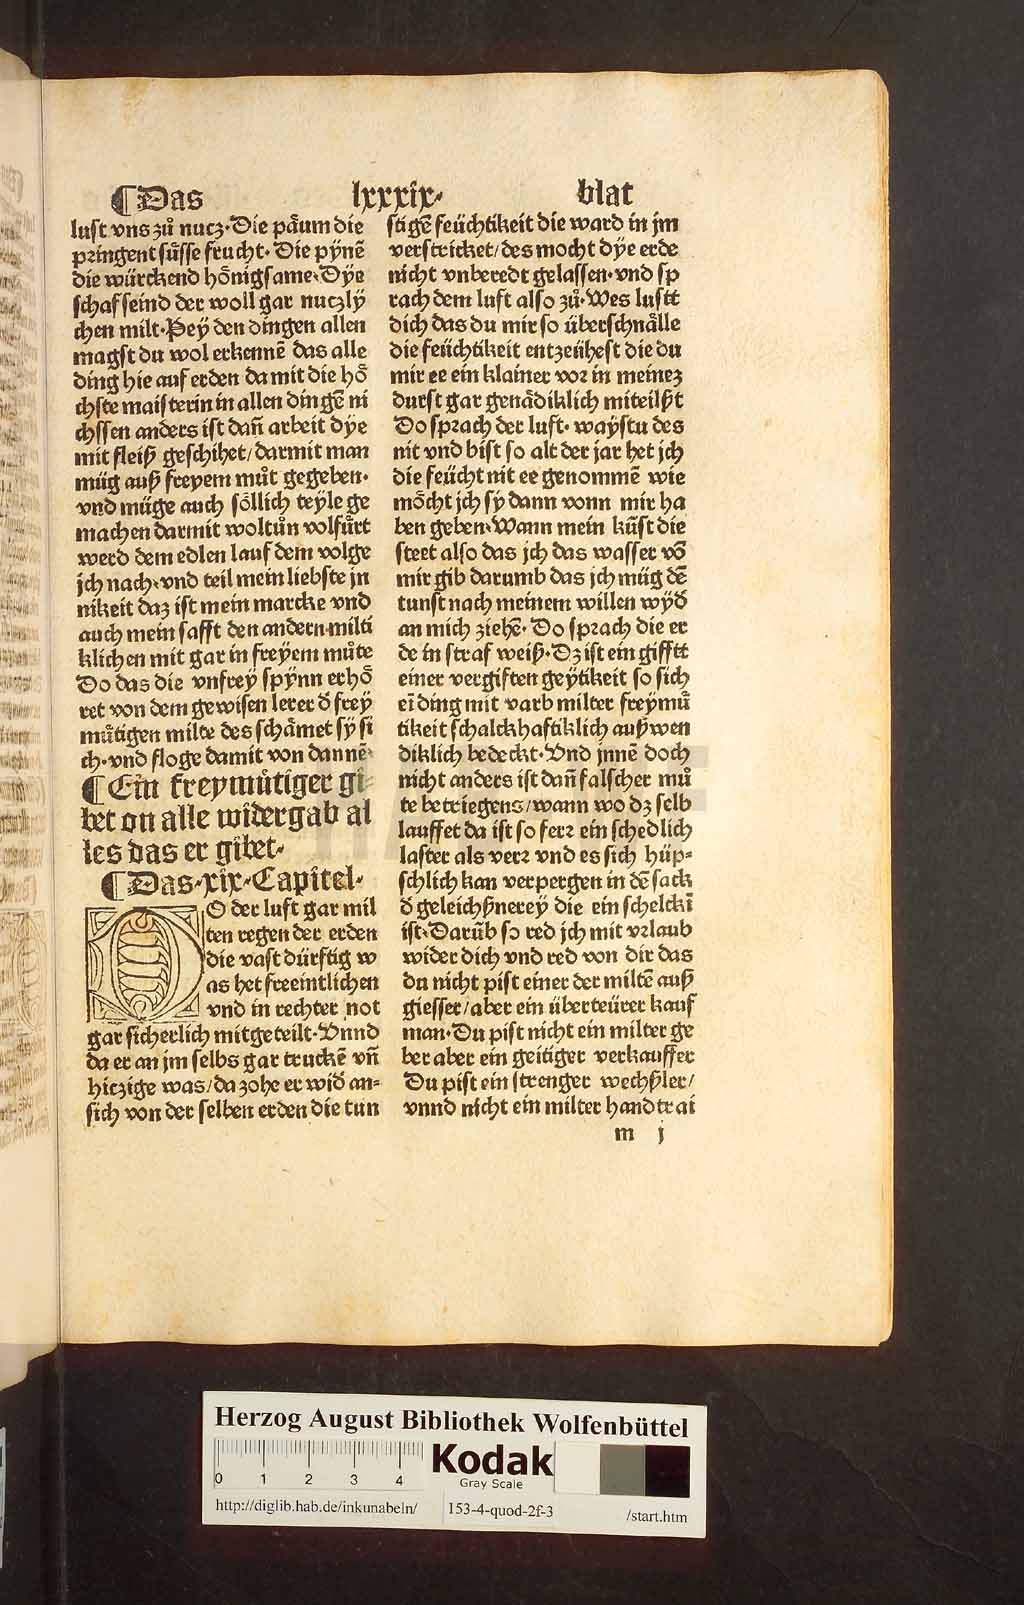 ¶Das lxxxix· blat
lust vns zů nucz·Die päum die
pringent süsse frucht· Die pÿnē
die würckend hönigsame·Dÿe
schaf seind der woll gar nuczlÿ
chen milt·Peÿ den dingen allen
magst du wol erkennē das alle
ding hie auf erden da mit die hö
chste maisterin in allen dingē ni
chssen anders ist dañ arbeit dÿe
mit fleiß geschihet/darmit man
müg auß freyem můt gegeben·
vnd müge auch söllich teyle ge
machen darmit woltůn volfůrt
werd dem edlen lauf dem volge
jch nach·vnd teil mein liebste jn
nikeit daz ist mein marcke vnd
auch mein safft den andern·milti
klichen mit gar in freÿem můte
Do das die vnfreÿ spÿnn erhö
ret von dem gewisen lerer d̄ freÿ
můtigen milte des schämet sÿ si
ch·vnd floge damit von dannē·
¶Ein freymůtiger gi
bet on alle widergab al
les das er gibet·
¶Das·xix·Capitel·
DO der luft gar mil
ten regen der erden
die vast dürftig w
as het freeintlichen
vnd in rechter not
gar sicherlich mitgeteilt·Vnnd
da er an jm selbs gar truckē vñ
hiczige was/da zohe er wid̄ an=
sich von der selben erden die tun
stigē feüchtikeit die ward in jm
verstricket/des mocht dÿe erde
nicht vnberedt gelassen·vnd sp
rach dem luft also zů·Wes lustt
dich das du mir so überschnälle
die feüchtikeit entzeühest die du
mir ee ein klainer vor in meinez
durst gar genädiklich miteilßt
Do sprach der luft· waÿstu des
nit vnd bist so alt der jar het jch
die feücht nit ee genommē wie
möcht jch sÿ dann vonn mir ha
ben geben·Wann mein kūst die
steet also das jch das wasser vō
mir gib darumb das jch müg dē
tunst nach meinem willen wÿd̄
an mich ziehē· Do sprach die er
de in straf weiß·Dz ist ein gifftt
einer vergiften geÿtikeit so sich
eī ding mit varb milter freymů
tikeit schalckhaftiklich außwen
diklich bedeckt·Vnd jnnē doch
nicht anders ist dañ falscher mů
te betriegens/wann wo dz selb
lauffet da ist so ferr ein schedlich
laster als verr vnd es sich hüp=
schlich kan verpergen in dē sack
d̄ geleichßnerey die ein schelckī
ist·Darūb so red jch mit vrlaub
wider dich vnd red von dir das
du nicht pist einer der miltē auß
giesser/aber ein überteürer kauf
man·Du pist nicht ein milter ge
ber aber ein geitiger verkauffer
Du pist ein strenger wechßler/
vnnd nicht ein milter handtrai
m j
Herzog August Bibliothek Wolfenbüttel
0 1 2 3 4
Kodak
Gray Scale
http://diglib.hab.de/inkunabeln/ 153-4-quod-2f-3 /start.htm